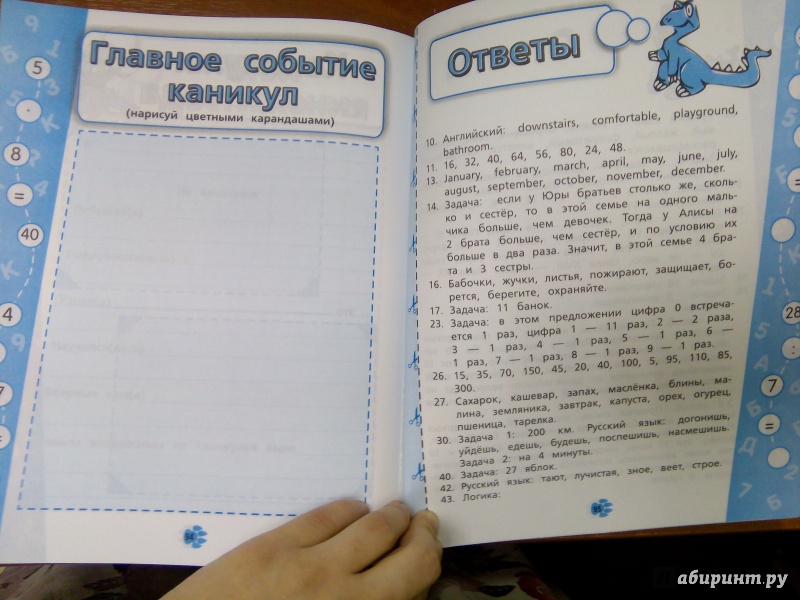 Главное событие
каникул
(нарисуй цветными карандашами)
5
8
=
40
4
94
Ответы
10. Английский: downstairs, comfortable, playground,
bathroom.
11. 16, 32, 40, 64, 56, 80, 24, 48.
13. January, february, march, april, may, june, july,
august, september, october, november, december.
14. Задача: если у Юры братьев столько же, сколь-
ко и сестёр, то в этой семье на одного маль-
чика больше, чем девочек. Тогда у Алисы на
2 брата больше, чем сестёр, и по условию их
больше в два раза. Значит, в этой семье 4 бра-
та и 3 сестры.
16. Бабочки, жучки, листья, пожирают, защищает, бо-
рется, берегите, охраняйте.
17. Задача: 11 банок.
23. Задача: в этом предложении цифра 0 встреча-
ется 1 раз, цифра 1 — 11 раз, 2 — 2 раза,
3 — 1 раз, 4 — 1 раз, 5 — 1 раз, 6 —
1 раз, 7 — 1 раз, 8 — 1 раз, 9 — 1 раз.
26. 15, 35, 70, 150, 45, 20, 40, 100, 5, 95, 110, 85,
300.
27. Сахарок, кашевар, запах, маслёнка, блины, ма-
лина, земляника, завтрак, капуста, орех, огурец,
пшеница, тарелка.
30. Задача 1: 200 км. Русский язык: догонишь,
уйдёшь, едешь, будешь, поспешишь, насмешишь.
Задача 2: на 4 минуты.
40. Задача: 27 яблок.
42. Русский язык: тают, лучистая, зное, веет, строе.
43. Логика:
95
28
:
7
=
Лабиринт.ру